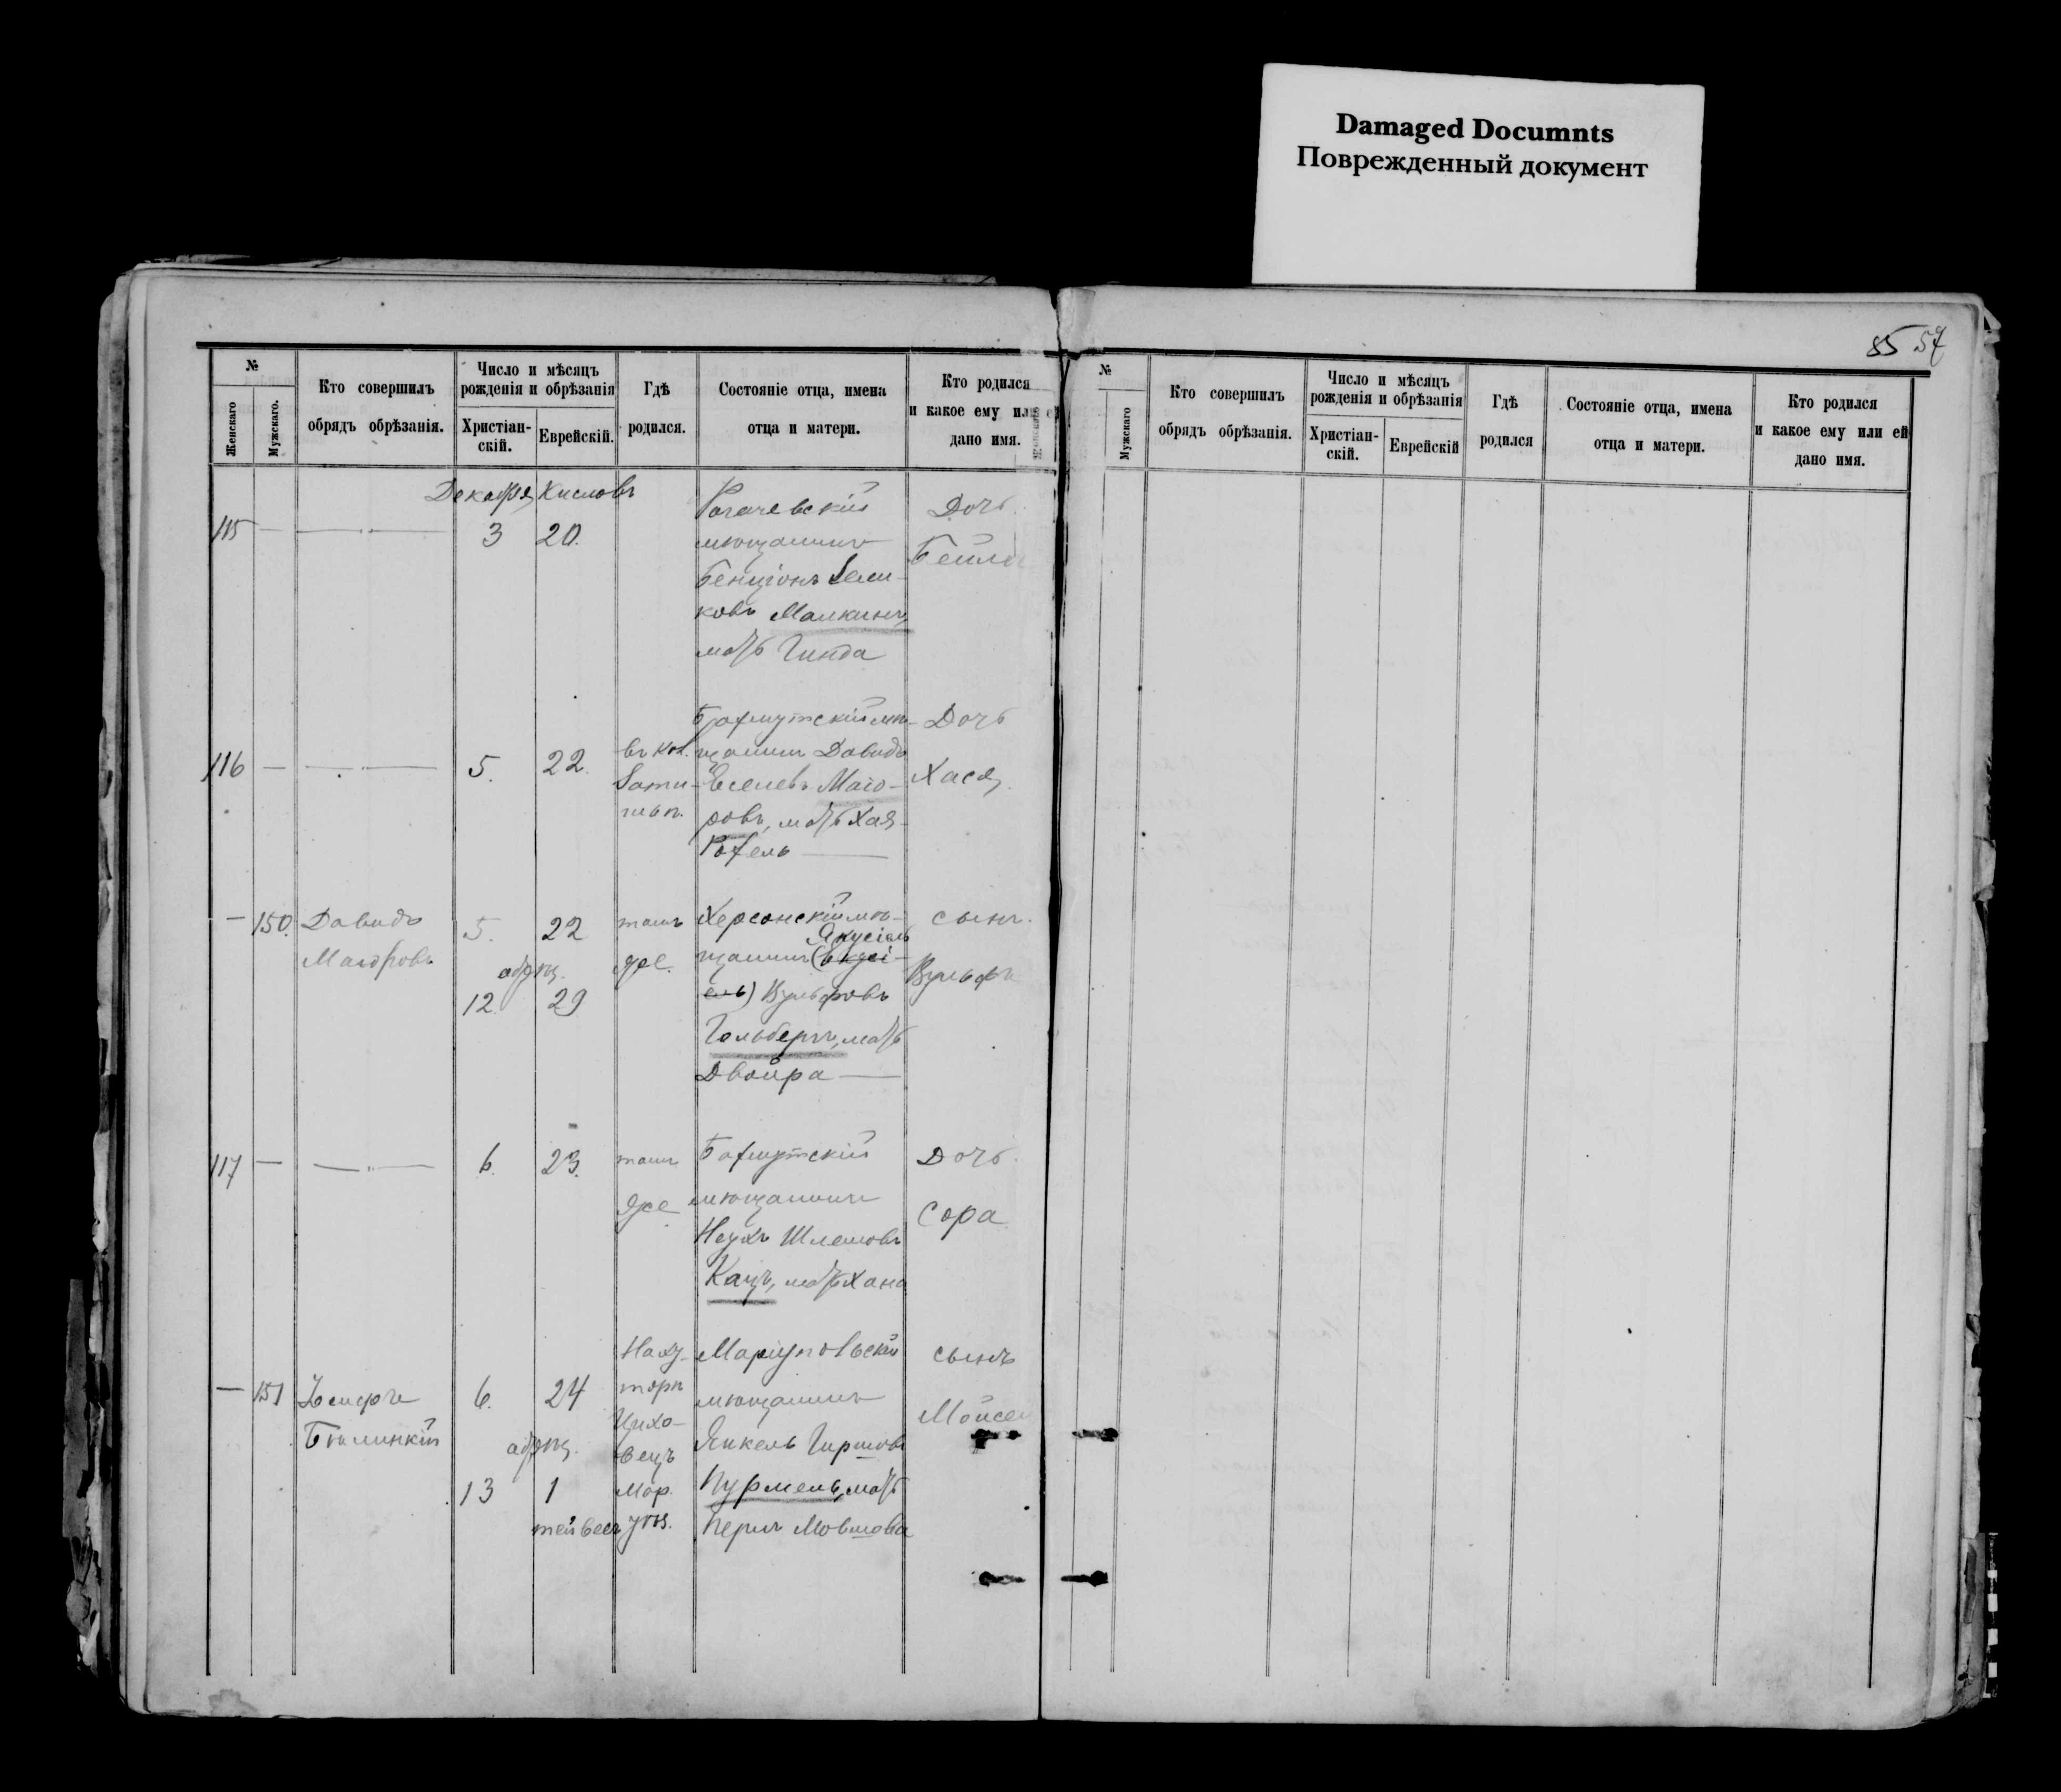 Damaged Documnts
Поврежденный документ
85 57
№
Женскаго
Мужскаго.
Кто совершилъ
обрядъ обрѣзанія.
Число и мѣсяцъ
рожденія и обрѣзанія
Христіан-
скій.
Еврейскій.
Гдѣ
родился.
Состояніе отца, имена
отца и матери.
Кто родился
и какое ему или
дано имя.
Декабря Кисловъ
115 — — 3 20.
Рогачевскій
мѣщанинъ
Бенціонъ
ковъ Малкинъ,
мать Гинда
Дочь.
Бейла
116 — — 5. 22.
въ кол.
Бахмутскій мѣ-
щанинъ Давидъ
Евселевъ Маго-
ровъ, мать Хая-
Рохель —
Дочь
Хася
— 150. Давидъ
Магоровъ
5. 22
обрѣз.
12. 29
тамъ
же.
Херсонскій мѣ-
Якусіель
щанинъ (Екусі-
ель) Вульфовъ
Гольбергъ, мать
Двойра —
сынъ.
Вульфъ
117 — — 6. 23.
тамъ
же
Бахмутскій
мѣщанинъ
Неухъ Шлемовъ
Кацъ, мать Хана
Дочь.
Сора
— 151
Бѣлинкій
6. 24
обрѣз.
13 1
тейвесъ
На ху-
торѣ
Цихо-
вецъ
Мар.
уѣз.
Маріупольскій
мѣщанинъ
Янкель Гиршовъ
Пурмель, мать
Перлъ Мовшова
сынъ
Мойсей
№
Мужскаго
Кто совершилъ
обрядъ обрѣзанія.
Число и мѣсяцъ
рожденія и обрѣзанія
Христіан-
скій.
Еврейскій
Гдѣ
родился
Состояніе отца, имена
отца и матери.
Кто родился
и какое ему или ей
дано имя.